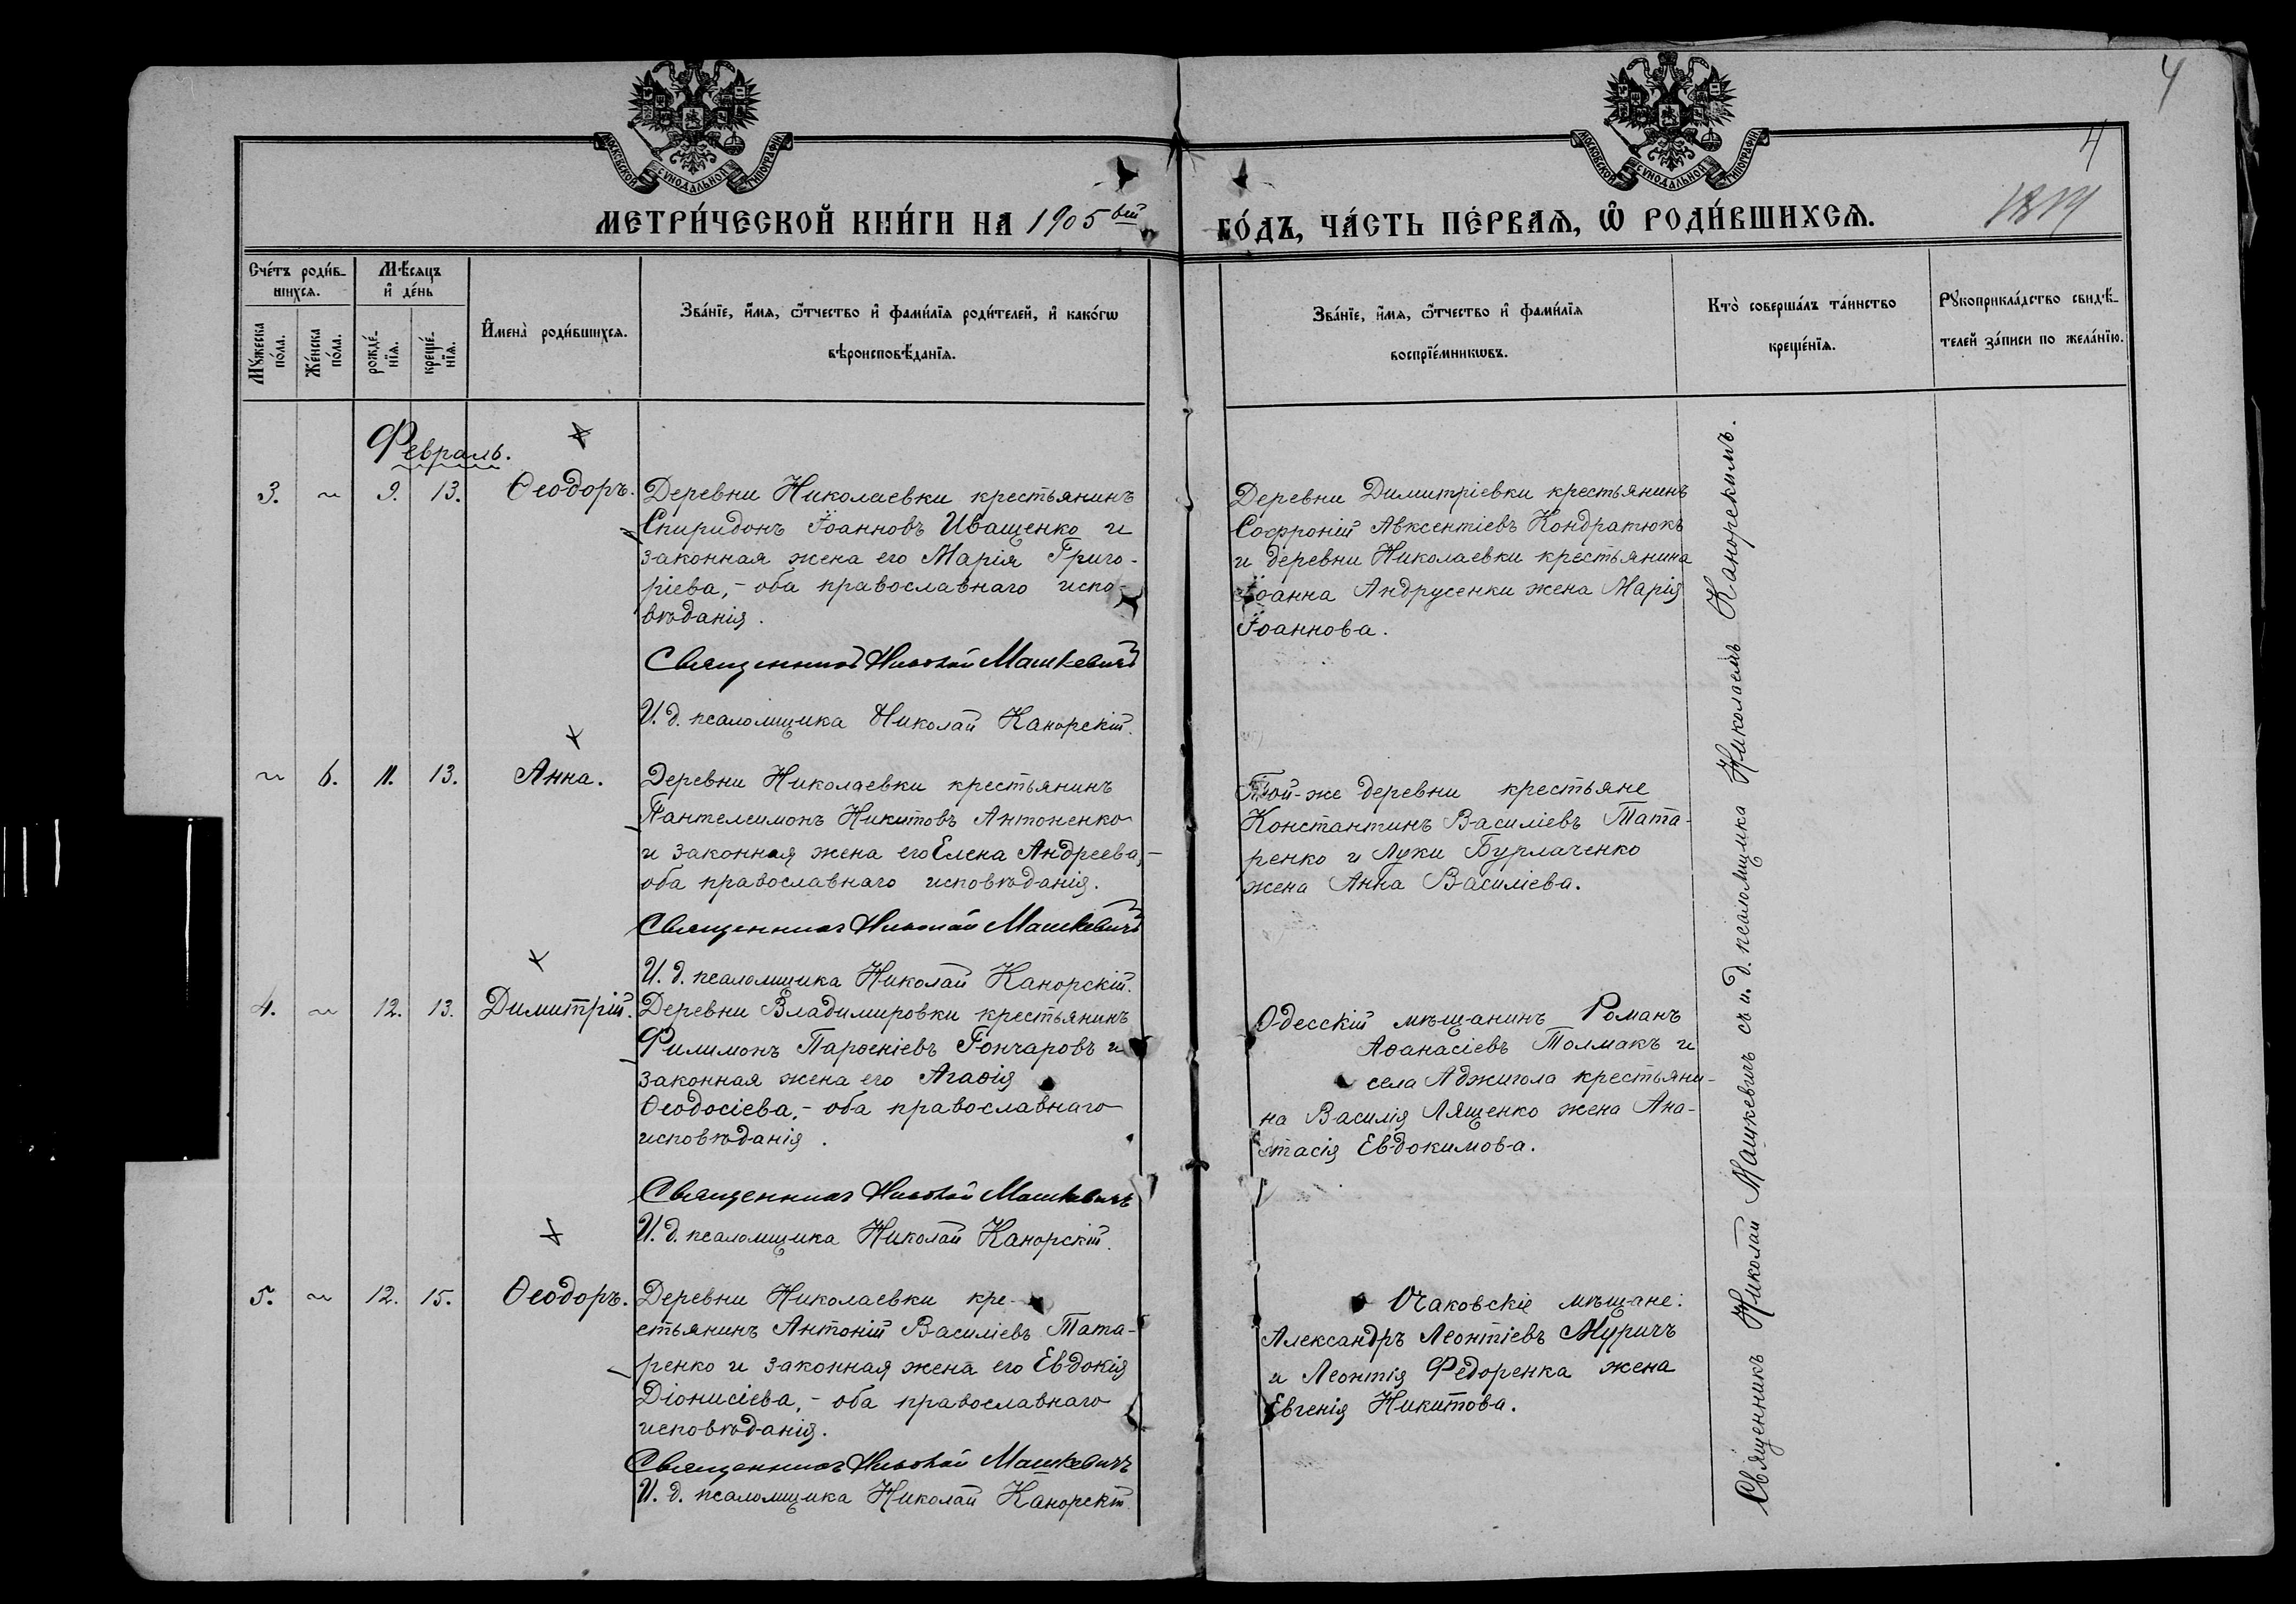 4
МОСКОВСКОЙ СѴНОДАЛЬНОЙ ТИПОГРАФІИ
МОСКОВСКОЙ СѴНОДАЛЬНОЙ ТИПОГРАФІИ
4
МЕТРИ́ЧЕСКОЙ КНИ́ГИ НА 1905 вый
ГО́ДЪ, ЧА́СТЬ ПЕ́РВАѦ, Ѽ РОДИ́ВШИХСѦ.
Сче́тъ роди́в-
шихсѧ.
Мѣ́сѧцъ
и҆ де́нь
Мꙋ́жеска
по́ла.
Же́нска
по́ла.
рожде́-
нїѧ.
креще́-
нїѧ.
И҆мена̀ роди́вшихсѧ.
Зва́нїе, и҆́мѧ, ѻ҆́тчество и҆ фами́лїѧ роди́телей, и҆ како́гѡ
вѣроисповѣ́данїѧ.
Зва́нїе, и҆́мѧ, ѻ҆́тчество и҆ фами́лїѧ
воспрїе́мникѡвъ.
Кто̀ соверша́лъ та́инство
креще́нїѧ.
Рꙋкоприкла́дство свидѣ́-
телей за́писи по жела́нїю.
Февраль.
3. ~ 9. 13. Ѳеодоръ.
Деревни Николаевки крестьянинъ
Спиридонъ Іоанновъ Иващенко и
законная жена его Марія Григо-
ріева, - оба православнаго испо-
вѣданія.
Священникъ Николай Машкевичъ
И. д. псаломщика Николай Канорскій.
Деревни Димитріевки крестьянинъ
Софроній Авксентіевъ Кондратюкъ
и деревни Николаевки крестьянина
Іоанна Андрусенки жена Марія
Іоаннова.
~ 6. 11. 13. Анна.
Деревни Николаевки крестьянинъ
Пантелеимонъ Никитовъ Антоненко
и законная жена его Елена Андреева, -
оба православнаго исповѣданія.
Священникъ Николай Машкевичъ
И. д. псаломщика Николай Канорскій.
Той-же деревни крестьяне
Константинъ Василіевъ Тата-
ренко и Луки Бурлаченко
жена Анна Василіева.
4. ~ 12. 13. Димитрій.
Деревни Владимировки крестьянинъ
Филимонъ Парѳеніевъ Гончаровъ и
законная жена его Агаѳія
Ѳеодосіева, - оба православнаго
исповѣданія.
Священникъ Николай Машкевичъ
И. д. псаломщика Николай Канорскій.
Одесскій мѣщанинъ Романъ
Аѳанасіевъ Толмакъ и
села Аджигола крестьяни-
на Василія Лященко жена Ана-
стасія Евдокимова.
5. ~ 12. 15. Ѳеодоръ.
Деревни Николаевки кре-
стьянинъ Антоній Василіевъ Тата-
ренко и законная жена его Евдокія
Діонисіева, - оба православнаго
исповѣданія.
Священникъ Николай Машкевичъ
И. д. псаломщика Николай Канорскій
Очаковскіе мѣщане:
Александръ Леонтіевъ Муричъ
и Леонтія Федоренка жена
Евгенія Никитова.
Священникъ Николай Машкевичъ съ и. д. псаломщика Николаемъ Канорскимъ.